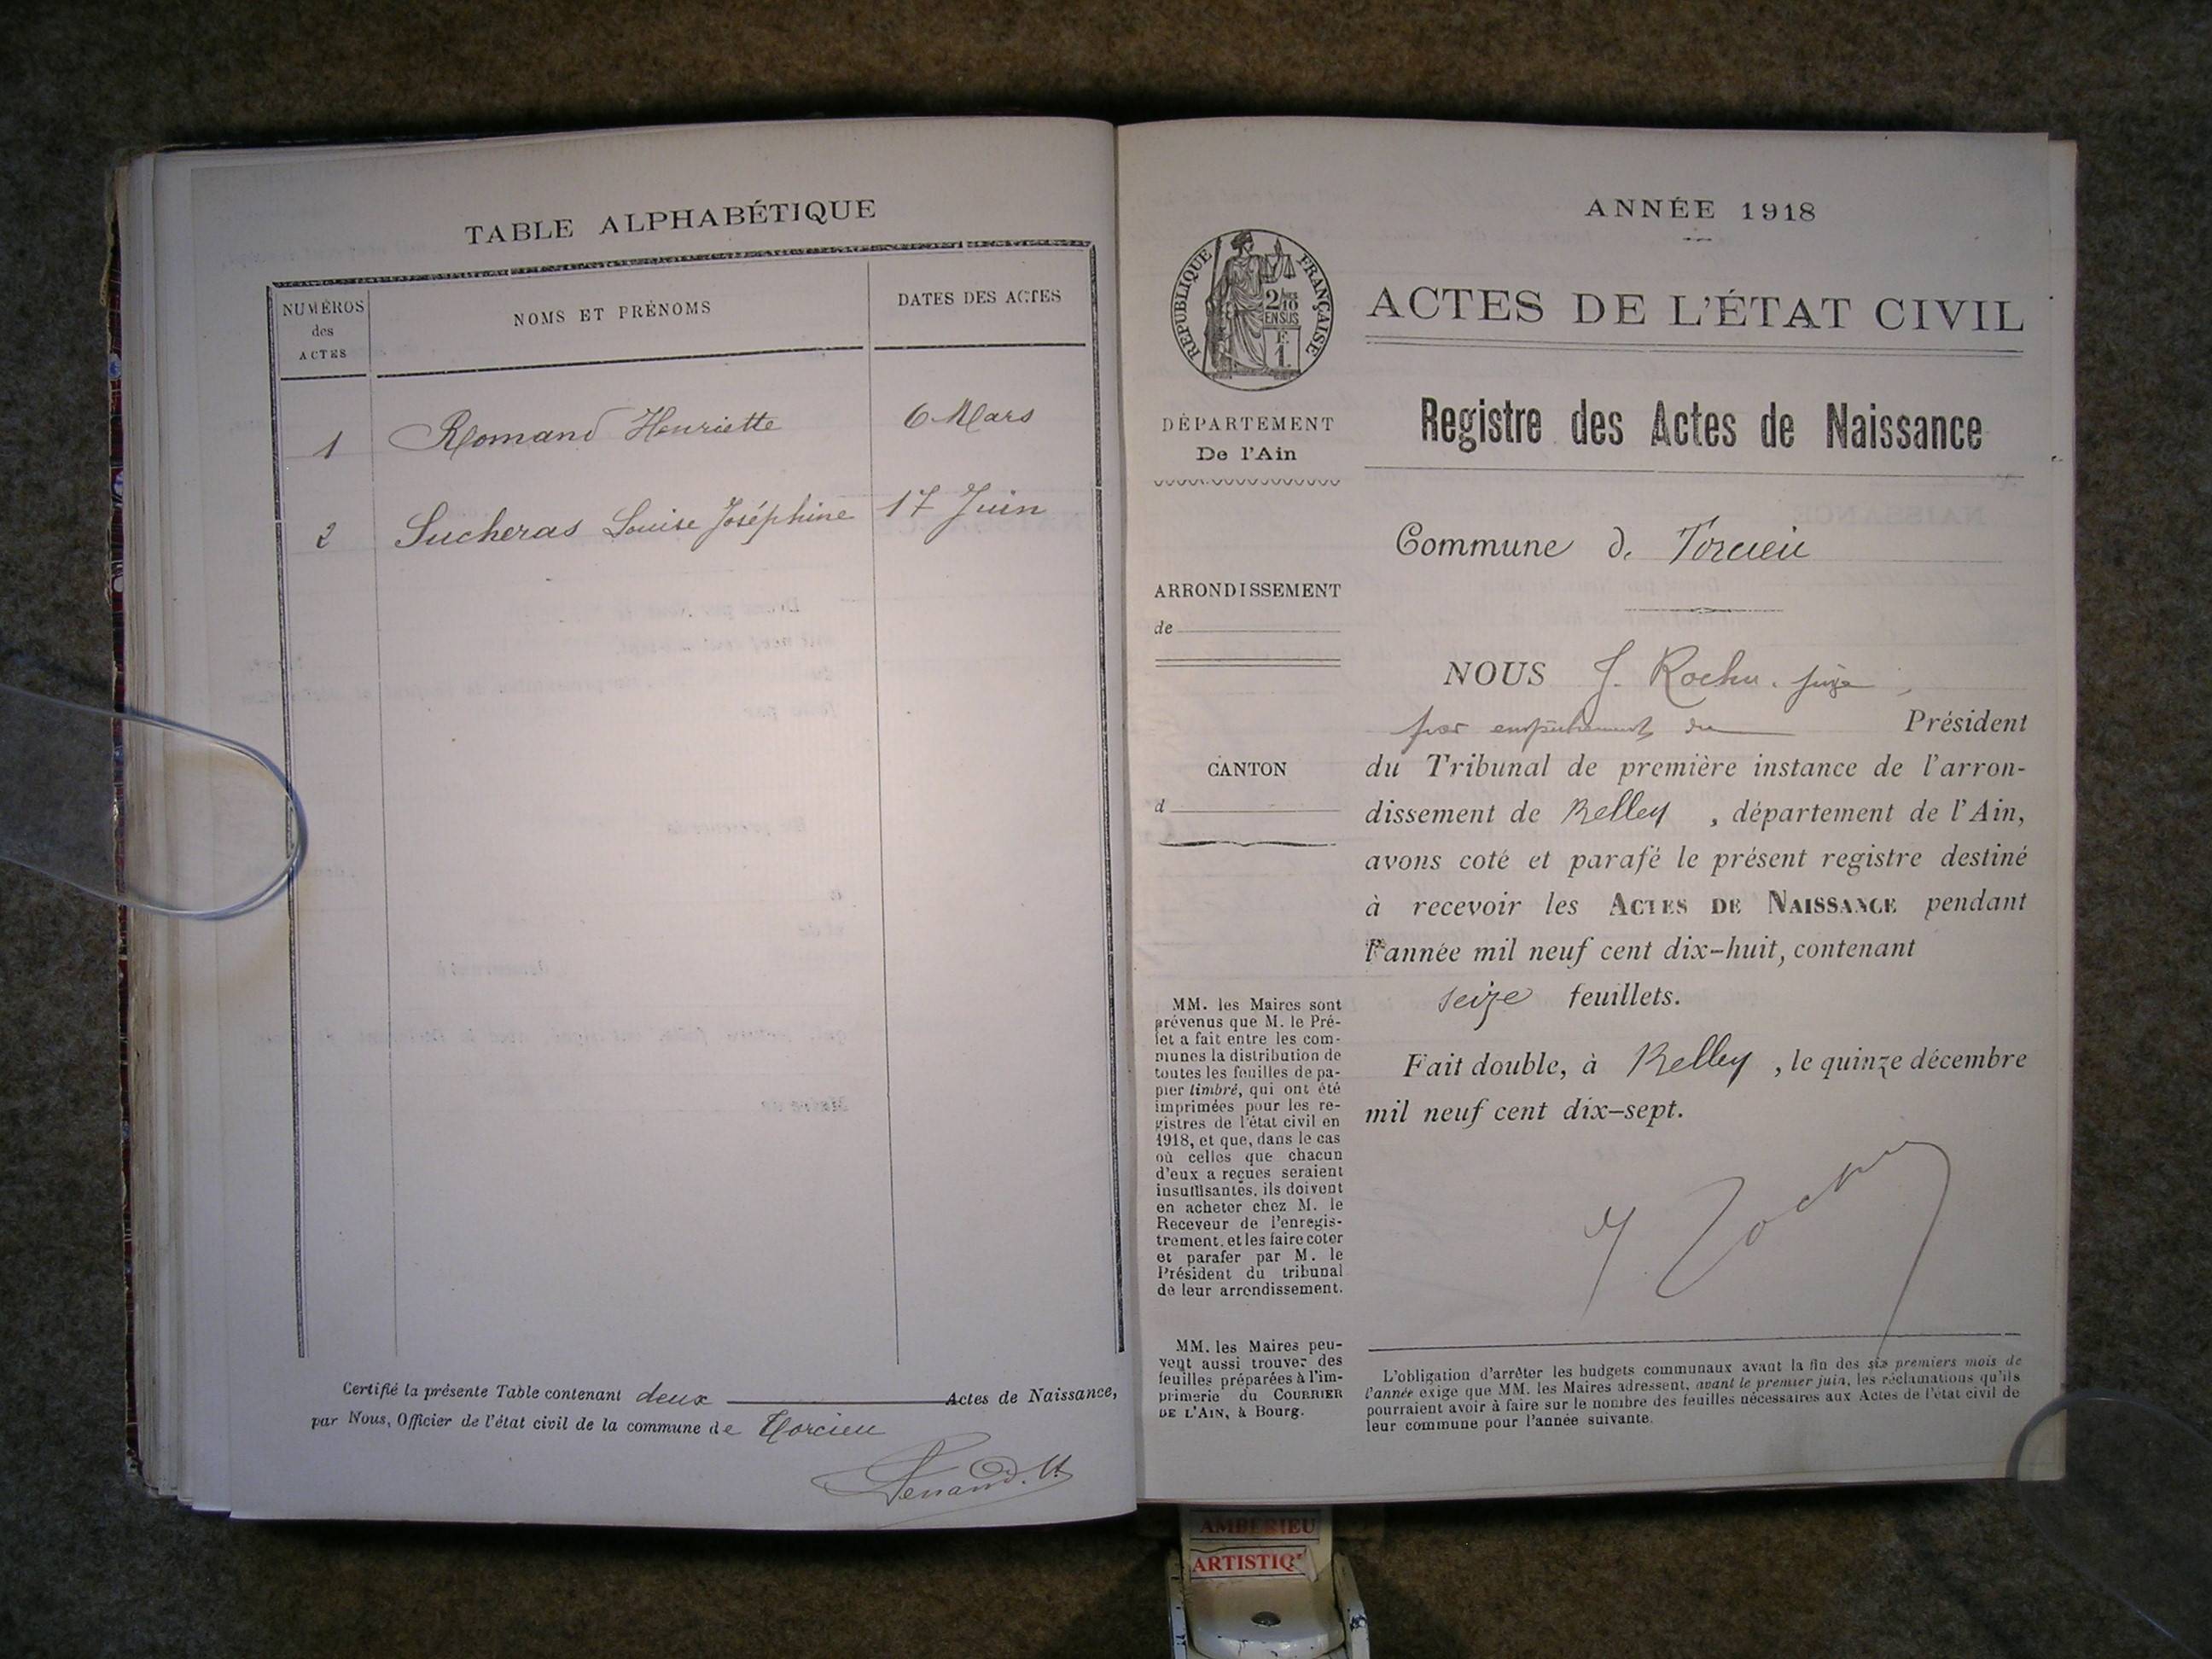 TABLE ALPHABÉTIQUE
NUMÉROS
des
ACTES
NOMS ET PRÉNOMS
DATES DES ACTES
1 Romand Henriette 6 Mars
2 Sucheras Louise Joséphine 17 Juin
Certifié la présente Table contenant deux Actes de Naissance,
par Nous, Officier de l'état civil de la commune de Torcieu
ANNÉE 1918
RÉPUBLIQUE FRANÇAISE
2/10
EN SUS
1
ACTES DE L'ÉTAT CIVIL
DÉPARTEMENT
De l'Ain
Registre des Actes de Naissance
Commune de Torcieu
ARRONDISSEMENT
de
NOUS J. Rochu. juge,
par empêchement du Président
CANTON
d
du Tribunal de première instance de l'arron-
dissement de Belley, département de l'Ain,
avons coté et parafé le présent registre destiné
à recevoir les ACTES DE NAISSANCE pendant
l'année mil neuf cent dix-huit, contenant
seize feuillets.
Fait double, à Belley, le quinze décembre
mil neuf cent dix-sept.
MM. les Maires sont
prévenus que M. le Pré-
fet a fait entre les com-
munes la distribution de
toutes les feuilles de pa-
pier timbré, qui ont été
imprimées pour les re-
gistres de l'état civil en
1918, et que, dans le cas
où celles que chacun
d'eux a reçues seraient
insuffisantes, ils doivent
en acheter chez M. le
Receveur de l'enregis-
trement, et les faire coter
et parafer par M. le
Président du tribunal
de leur arrondissement.
MM. les Maires peu-
vent aussi trouver des
feuilles préparées à l'im-
primerie du COURRIER
DE L'AIN, à Bourg.
L'obligation d'arrêter les budgets communaux avant la fin des six premiers mois de
l'année exige que MM. les Maires adressent, avant le premier juin, les réclamations qu'ils
pourraient avoir à faire sur le nombre des feuilles nécessaires aux Actes de l'état civil de
leur commune pour l'année suivante.
AMBERIEU
ARTISTIQ